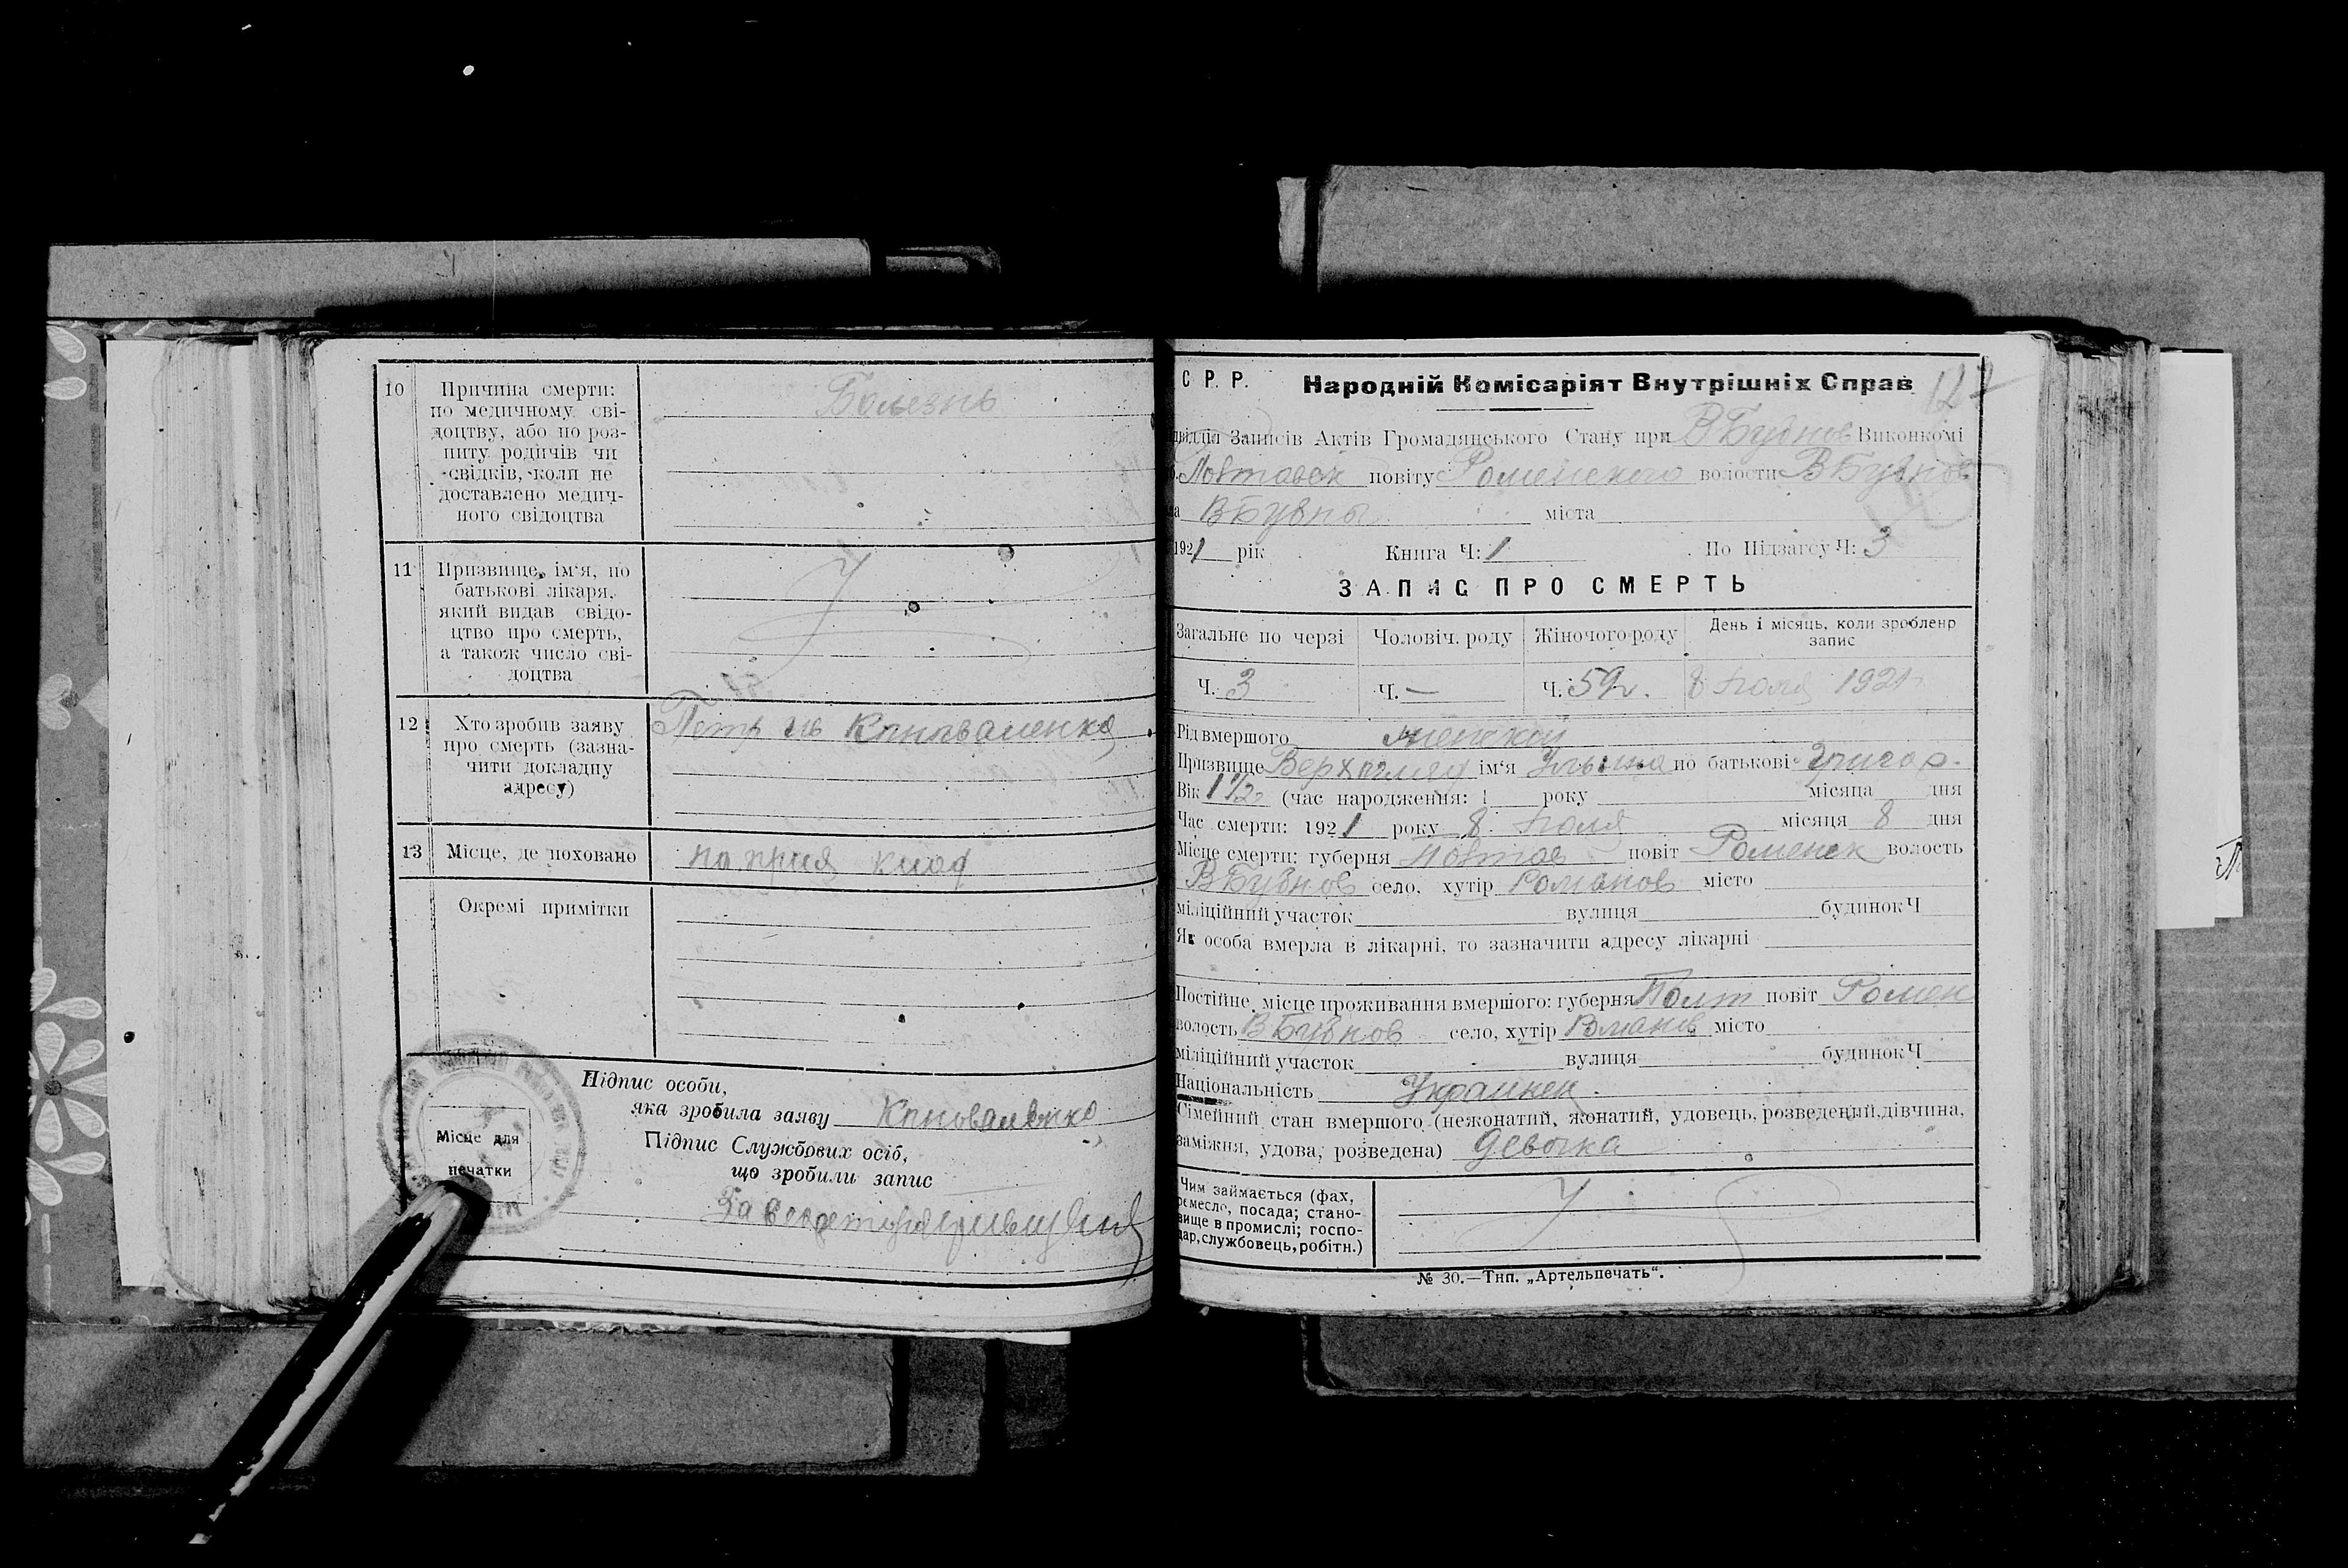 10 Причина смерти:
по медичному сві-
доцтву, або по роз-
питу родичів чи
свідків, коли не
доставлено медич-
ного свідоцтва
Болезнь
11 Призвище, ім‘я, по
батькові лікаря,
який видав свідо-
цтво про смерть,
а також число сві-
доцтва
12 Хто зробив заяву
про смерть (зазна-
чити докладну
адресу)
Петр
13 Місце, де поховано
на клад
Окремі примітки
Підпис особи,
яка зробила заяву
Підпис Службових осіб,
що зробили запис
Місце для
печатки
С Р. Р. Народній Комісаріят Внутрішніх Справ
Записів Актів Громадянського Стану при ВБубнов Виконкомі
Повтавск повіту Роменского волости ВБубнов
ВБубны міста
1921 рік Книга Ч: 1 По Підзагсу Ч: 3
ЗАПИС ПРО СМЕРТЬ
Загальне по черзі Чоловіч. роду Жіночого роду День і місяць, коли зроблено
запис
Ч. 3 Ч. — Ч. 8 1921
Рід вмершого женской
Призвище ім‘я по батькові Григор.
Вік 1 1/2 (час народження: 1 року місяца дня
Час смерти: 1921 року 8 місяця 8 дня
Місце смерти: губерня Повтав повіт Роменск волость
ВБубнов село, хутір Романов місто
міліційний участок вулиця будинок Ч
Як особа вмерла в лікарні, то зазначити адресу лікарні
Постійне місце проживання вмершого: губерня Полт повіт Ромен
волость ВБубнов село, хутір місто
міліційний участок вулиця будинок Ч
Національність Украинец
Сімейний стан вмершого (нежонатий, жонатий, удовець, розведений, дівчина,
заміжня, удова, розведена) девочка
Чим займається (фах,
ремесло, посада; стано-
вище в промислі; госпо-
дар, службовець, робітн.)
№ 30.—Тип. „Артельпечать“.